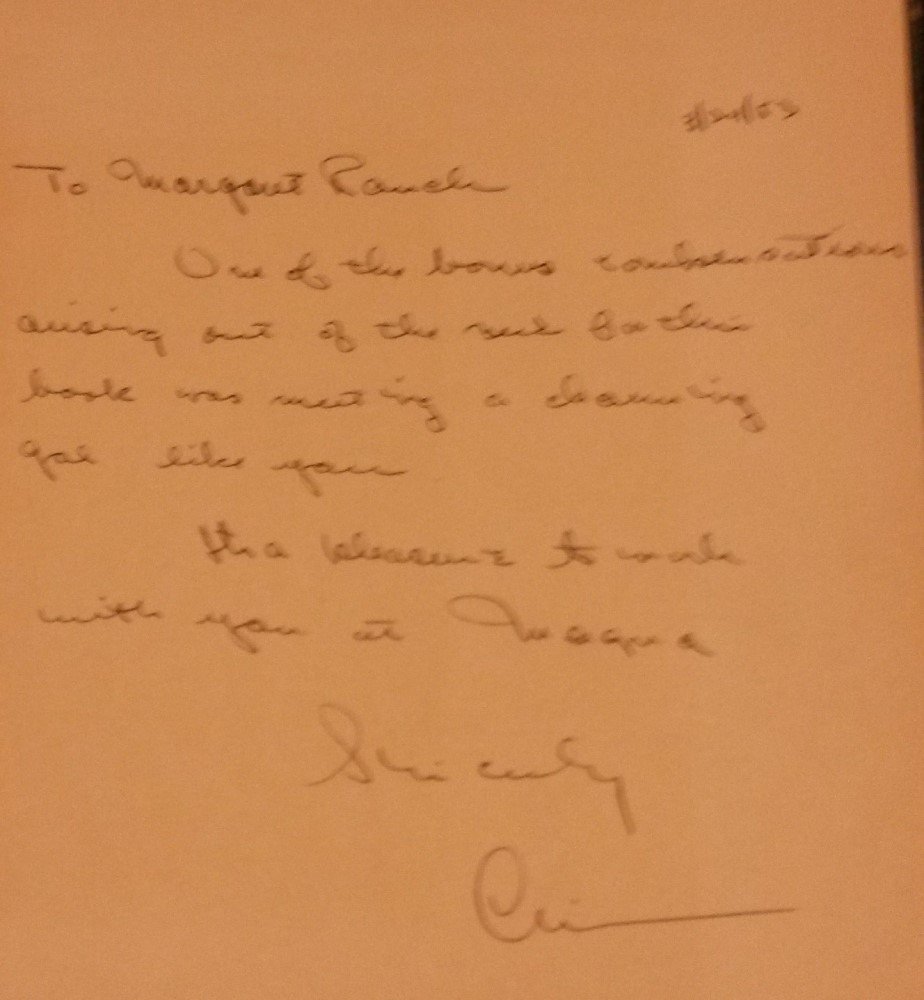 To Margaret Rauch
One of the bonus compensations
arising out of the
book was meeting a charming
gal like you
It's a pleasure to work
with you at Magna
Sincerely